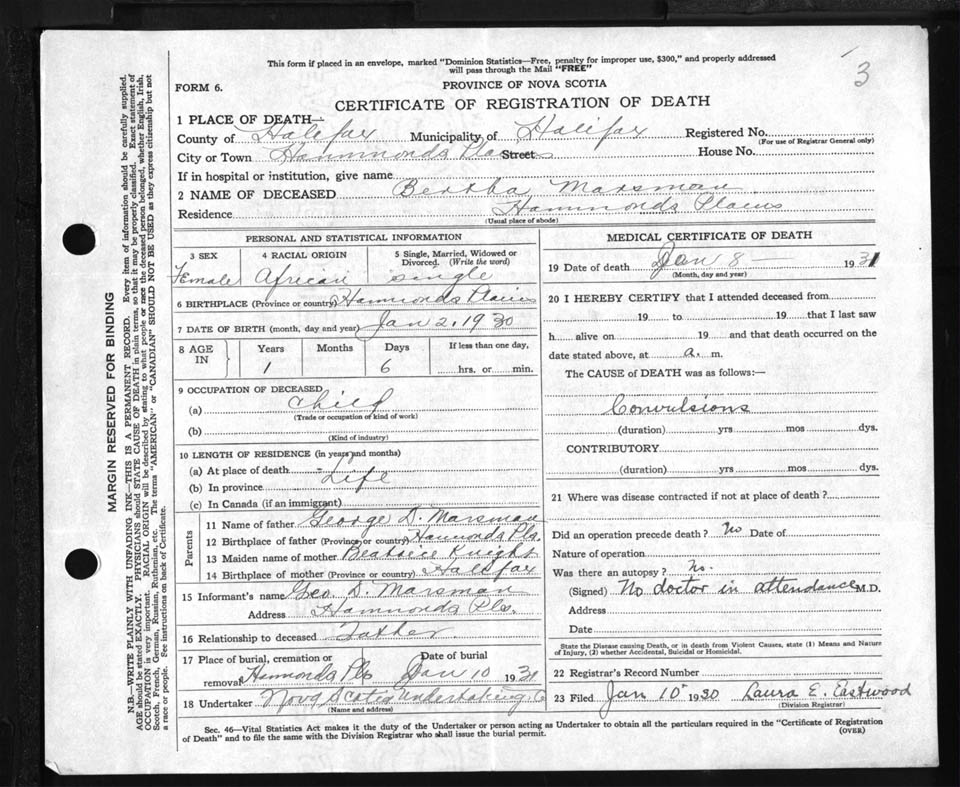 This form if placed in an envelope, marked "Dominion Statistics—Free, penalty for improper use, $300," and properly addressed
will pass through the Mail "FREE"
3
FORM 6.
PROVINCE OF NOVA SCOTIA
CERTIFICATE OF REGISTRATION OF DEATH
1 PLACE OF DEATH—
County of Halifax Municipality of Halifax Registered No.
(For use of Registrar General only)
City or Town Hammonds Plains Street House No.
If in hospital or institution, give name
2 NAME OF DECEASED Bertha Marsman
Residence Hammonds Plains
(Usual place of abode)
PERSONAL AND STATISTICAL INFORMATION
3 SEX 4 RACIAL ORIGIN 5 Single, Married, Widowed or Divorced. (Write the word)
Female African single
6 BIRTHPLACE (Province or country) Hammonds Plains
7 DATE OF BIRTH (month, day and year) Jan 2. 1930
8 AGE IN Years Months Days If less than one day,
1 6 hrs. or min.
9 OCCUPATION OF DECEASED
(a) Child
(Trade or occupation or kind of work)
(b)
(Kind of industry)
10 LENGTH OF RESIDENCE (in years and months)
(a) At place of death
(b) In province Life
(c) In Canada (if an immigrant)
Parents
11 Name of father George D. Marsman
12 Birthplace of father (Province or country) Hammonds Pls.
13 Maiden name of mother Beatrice Knight
14 Birthplace of mother (Province or country) Halifax
15 Informant's name Geo. D. Marsman
Address Hammonds Pls.
16 Relationship to deceased Father.
17 Place of burial, cremation or removal Hammonds Pls Date of burial Jan 10 1931
18 Undertaker Nova Scotia Undertaking Co
(Name and address)
MEDICAL CERTIFICATE OF DEATH
19 Date of death Jan 8 — 1931
(Month, day and year)
20 I HEREBY CERTIFY that I attended deceased from
19 to 19 that I last saw
h alive on 19 and that death occurred on the
date stated above, at a. m.
The CAUSE of DEATH was as follows:—
Convulsions
(duration) yrs mos dys.
CONTRIBUTORY
(duration) yrs mos dys.
21 Where was disease contracted if not at place of death?
Did an operation precede death? No Date of
Nature of operation
Was there an autopsy? No.
(Signed) No doctor in attendance M.D.
Address
Date
State the Disease causing Death, or in death from Violent Causes, state (1) Means and Nature
of Injury, (2) whether Accidental, Suicidal or Homicidal.
22 Registrar's Record Number
23 Filed Jan 10" 1930 Laura E. Eastwood
(Division Registrar)
Sec. 46—Vital Statistics Act makes it the duty of the Undertaker or person acting as Undertaker to obtain all the particulars required in the "Certificate of Registration
of Death" and to file the same with the Division Registrar who shall issue the burial permit.
(OVER)
MARGIN RESERVED FOR BINDING
N.B.—WRITE PLAINLY WITH UNFADING INK—THIS IS A PERMANENT RECORD. Every item of information should be carefully supplied.
AGE should be stated EXACTLY. PHYSICIANS should STATE CAUSE OF DEATH in plain terms, so that it may be properly classified. Exact statement of
OCCUPATION is very important. RACIAL ORIGIN will be described by stating to what people or race the deceased person belonged, whether English, Irish,
Scotch, French, German, Russian, Ruthenian, etc. The terms "AMERICAN" or "CANADIAN" SHOULD NOT BE USED as they express citizenship but not
a race or people. See instructions on back of Certificate.